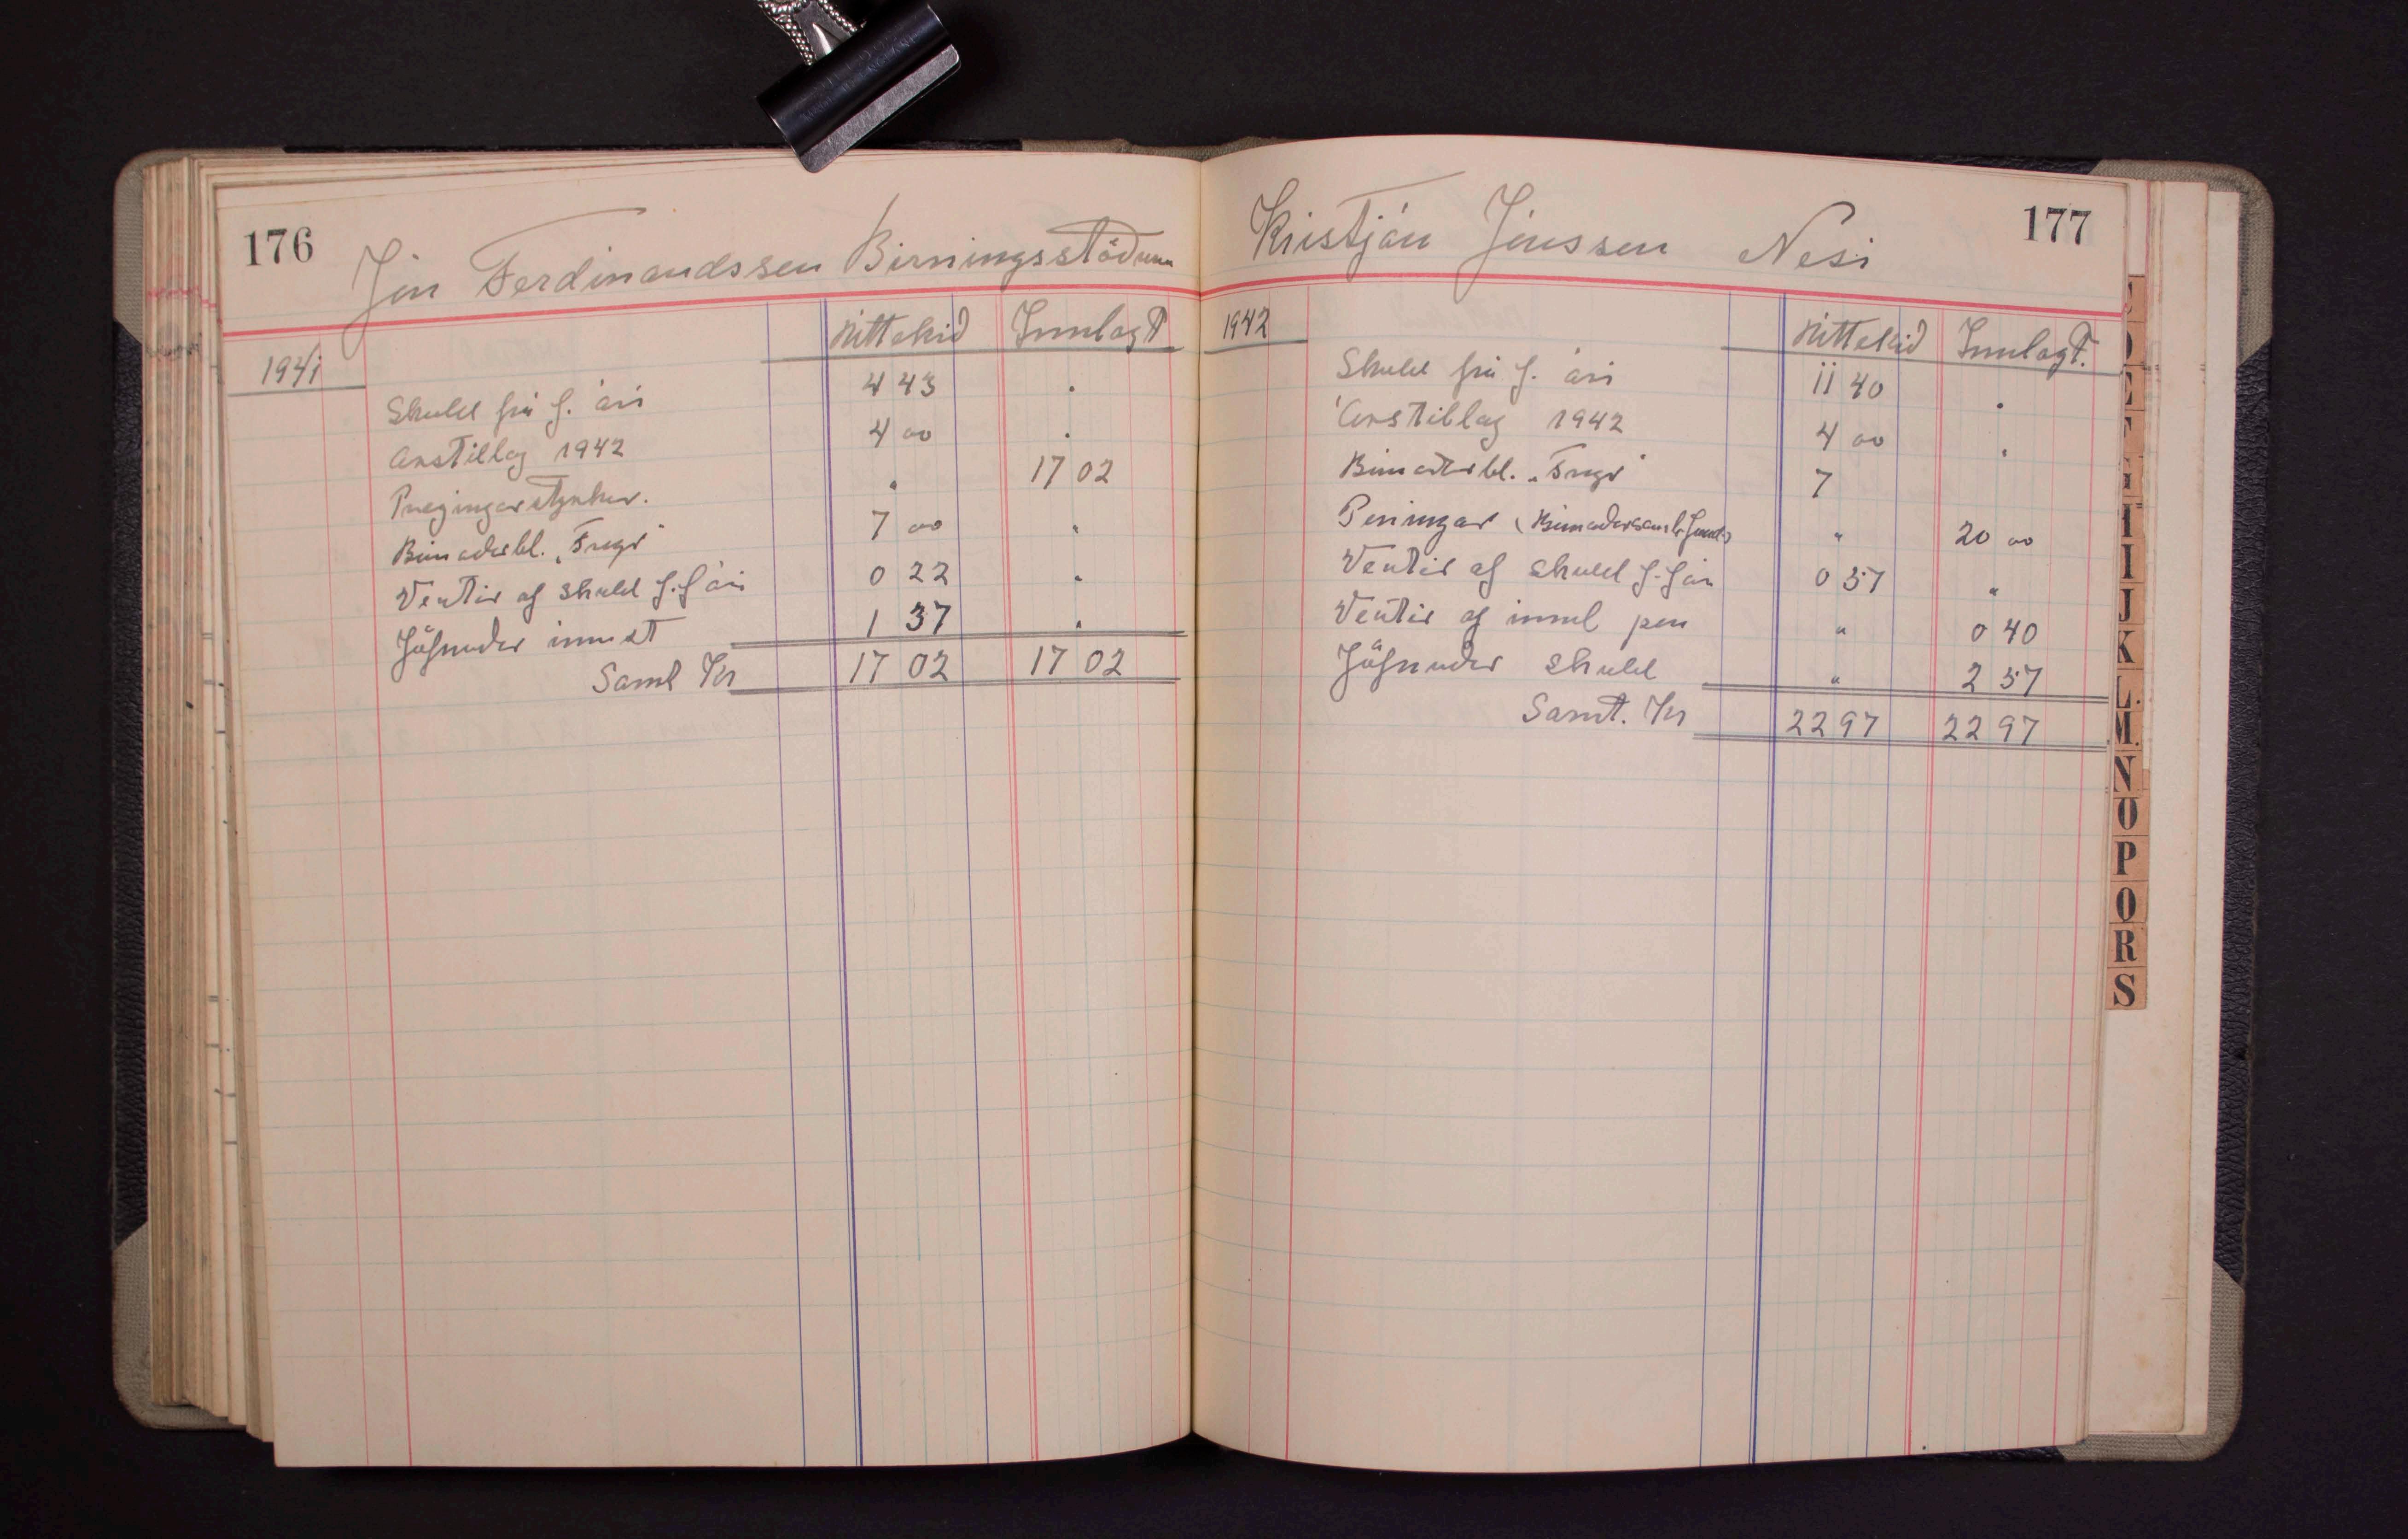 176
Jón Ferdinandsson Birningsstöðum
Úttekið Innlagt
1941
Skuld frá f. ári 4 43 "
Árstillag 1942 4 00 "
" 17 02
Búnaðarbl. "Freyr" 7 00 "
Vextir af skuld f. f ári 0 22 "
Jöfnuður innst 1 37 "
Saml Kr 17 02 17 02
177
Kristján Jónsson Nesi
1942 Úttekið Innlagt.
Skuld frá f. ári 11 40 "
Árstillag 1942 4 00 "
Búnaðarbl. "Freyr" 7
Peningar " 20 00
Vextir af skuld f. f ári 0 57 "
Vextir af innl pen " 0 40
Jöfnuður skuld " 2 57
Samt. Kr 22 97 22 97
E
F
I
I
J
K
L.
M.
N
O
P
R
S